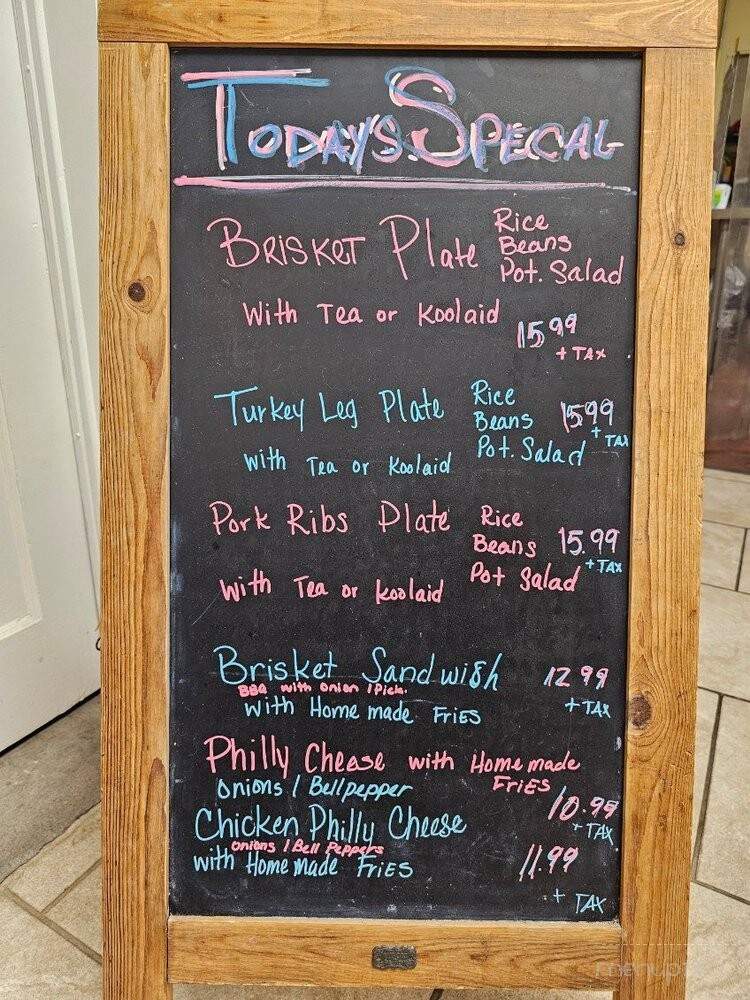 TODAY'S SPECAL
BRISKET Plate Rice
Beans
Pot. Salad
With Tea or Koolaid
15.99
+ TAX
Turkey Leg Plate Rice
Beans 15.99
+ TAX
Pot. Salad
with Tea or Koolaid
Pork Ribs Plate Rice
Beans 15.99
+ TAX
Pot Salad
with Tea or Koolaid
Brisket Sandwish 12.99
BBQ with onion / Pick.
+ TAX
with Home made Fries
Philly Cheese with Home made
Fries
Onions / Bellpepper
10.99
+ TAX
Chicken Philly Cheese
Onions / Bell Peppers
with Home made Fries
11.99
+ TAX